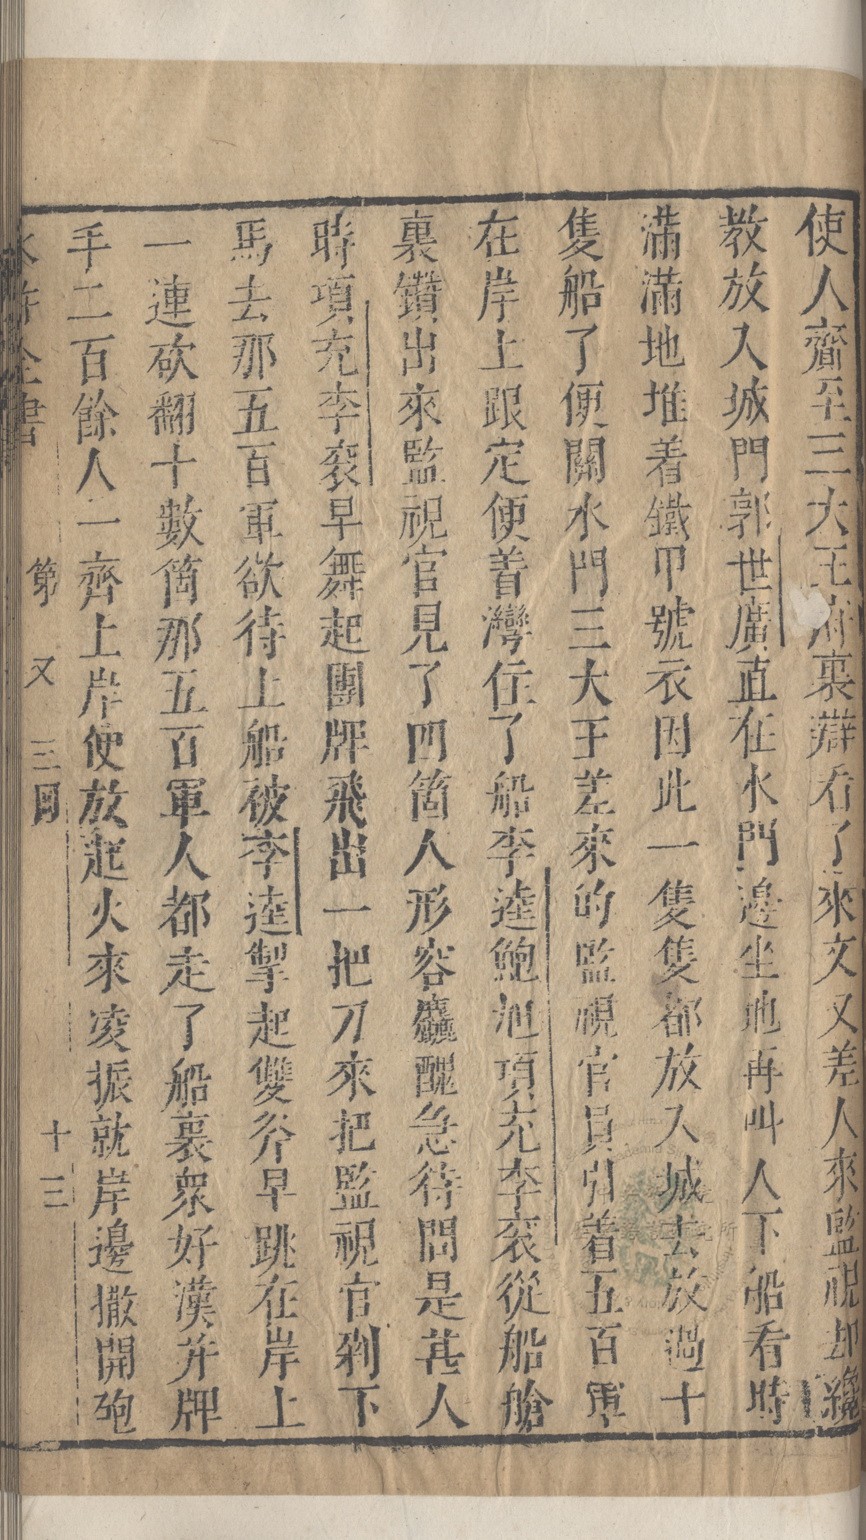 使人齎至三大王府裏辯看了來文又差人來監視却纔
教放入城門郭世廣直在水門邊坐地再叫人下船看時
滿滿地堆着鐵甲號衣因此一隻隻都放入城去放過十
隻船了便關水門三大王差來的監視官員引着五百軍
在岸上跟定便着灣住了船李逵鮑旭項充李袞從船艙
裏鑽出來監視官見了四箇人形容麤醜急待問是甚人
時項充李袞早舞起團牌飛出一把刀來把監視官剁下
馬去那五百軍欲待上船被李逵掣起雙斧早跳在岸上
一連砍翻十數箇那五百軍人都走了船裏衆好漢并牌
手二百餘人一齊上岸便放起火來凌振就岸邊撒開砲
水滸全書 第又三回 十三